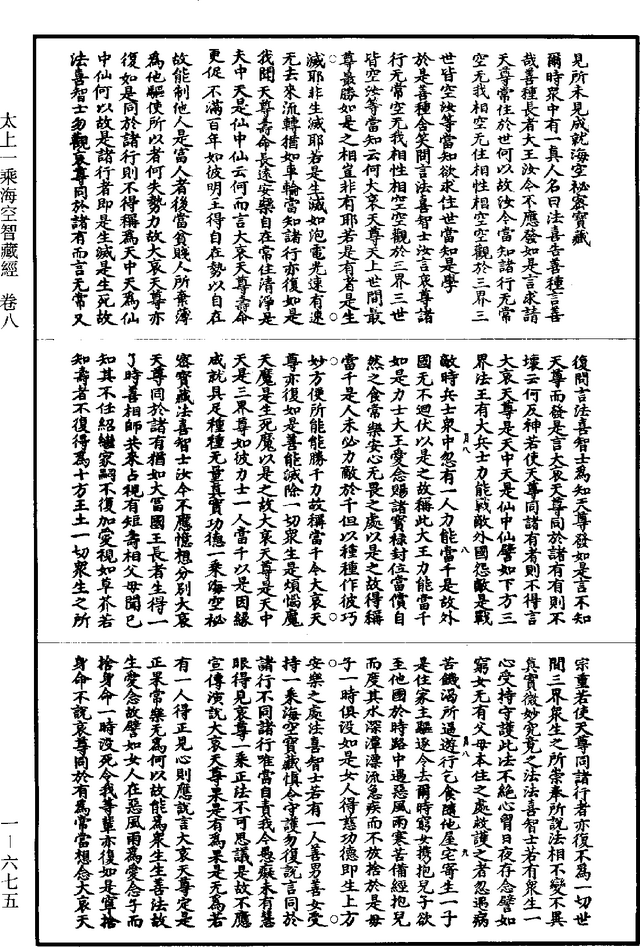 見所未見成就海空秘密寶藏
爾時眾中有一真人名曰法喜告善種言善
哉善種長者大王汝今不應發如是言求請
天尊常住於世何以故汝今當知諸行无常
空无我相空无住相性相空空觀於三界三
世皆空汝等當知欲求住世當知是學
於是善種含笑問言法喜智士汝言哀尊諸
行无常空无我相性相空空觀於三界三世
皆空汝等當知云何大哀天尊天上世間最
尊最勝如是之相豈非有耶若是有者是生
滅耶非生滅耶若是生滅如泡電光速有速
无去來流轉猶如車輪當知諸行亦復如是
我聞天尊壽命長遠安樂自在常住清淨是
天中天是仙中仙云何而言大哀天尊壽命
更促不滿百年如彼明王得自在勢以自在
故能制他人是富人者後當貧賤人所棄薄
為他驅使所以者何失勢力故大哀天尊亦
復如是同於諸行則不得稱為天中天為仙
中仙何以故是諸行者即是生滅是生死故
法喜智士勿觀哀尊同於諸有而言无常又
復問言法喜智士為知天尊發如是言不知
天尊而發是言大哀天尊同於諸有有則不
壞云何反神若使天尊同諸有者則不得言
大哀天尊是天中天是仙中仙譬如下方三
界法王有大兵士力能戰敵外國怨敵是戰
敵時兵士眾中忽有一人力能當千是故外
國无不迴伏以是之故稱此大王力能當千
如是力士大王愛念賜諸寶祿封位當償自
然之食常樂安心无畏之處以是之故得稱
當千是人未必力敵於千但以種種作彼巧
妙方便所能能勝千力故稱當千今大哀天
尊亦復如是善能滅除一切眾生是煩惱魔
天魔是生死魔以是之故大哀天尊是天中
天是三界尊如彼力士一人當千以是因緣
成就具足種種无量真實功德一乘海空秘
密寶藏法喜智士汝今不應憶想分別大哀
天尊同於諸有猶如大富國王長者生得一
子時善相師共來占視有短壽相父母聞已
知其不任紹繼家嗣不復加愛視如草芥若
知壽者不復得為十方王土一切眾生之所
宗重若使天尊同諸行者亦復不為一切世
間三界眾生之所崇奉所說法相不變不異
真實微妙究竟之法法喜智士若有眾生一
心受持守護此法不絕心胃日夜存念譬如
窮女无有父母本住之處救護之者忽遇病
苦餓渴所逼遊行乞食隨他屋宅寄生一子
是住家主驅逐令去爾時窮女擕抱兒子欲
至他國於時路中遇惡風雨寒苦備經抱兒
而度其水深潭漂流急疾而不放捨於是母
子一時俱没如是女人得慈功德即生上方
安樂之處法喜智士若有一人善男善女受
持一乘海空寶藏慎令守護勿復說言同於
諸行不同諸行唯當自責我今愚癡未有慧
眼得見哀尊一乘正法不可思議是故不應
宣傳演說大哀天尊果是有為果是无為若
有一人得正見心則應說言大哀天尊定是
正果常樂无為何以故能為眾生生善法故
生愛念故譬如女人在惡風雨為愛念子而
捨身命一時没死令我等輩亦復如是寧捨
身命不說哀尊同於有為常當想念大哀天
太上一乘海空智藏經 卷八
一－六七五